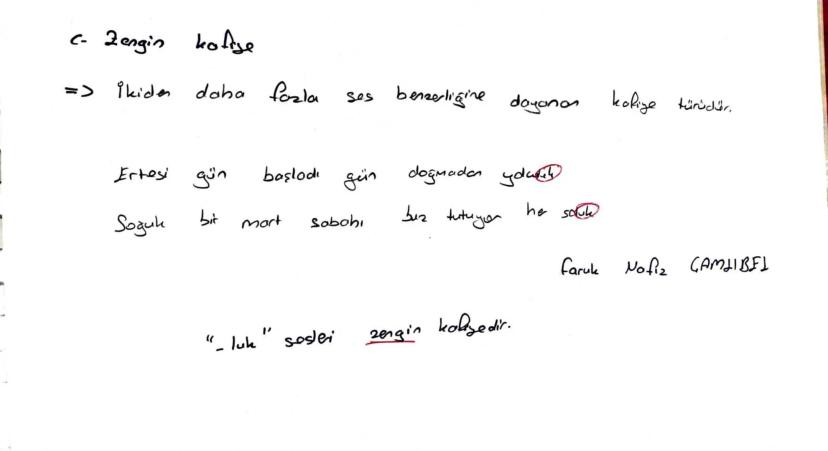 c- Zengin kafiye
=> İkiden daha fazla ses benzerliğine dayanan kafiye türüdür.
Ertesi gün başladı gün doğmadan yolculuk
Soğuk bir mart sabahı buz tutuyor her soluk
Faruk Nafiz ÇAMLIBEL
"-luk" sesleri zengin kafiyedir.